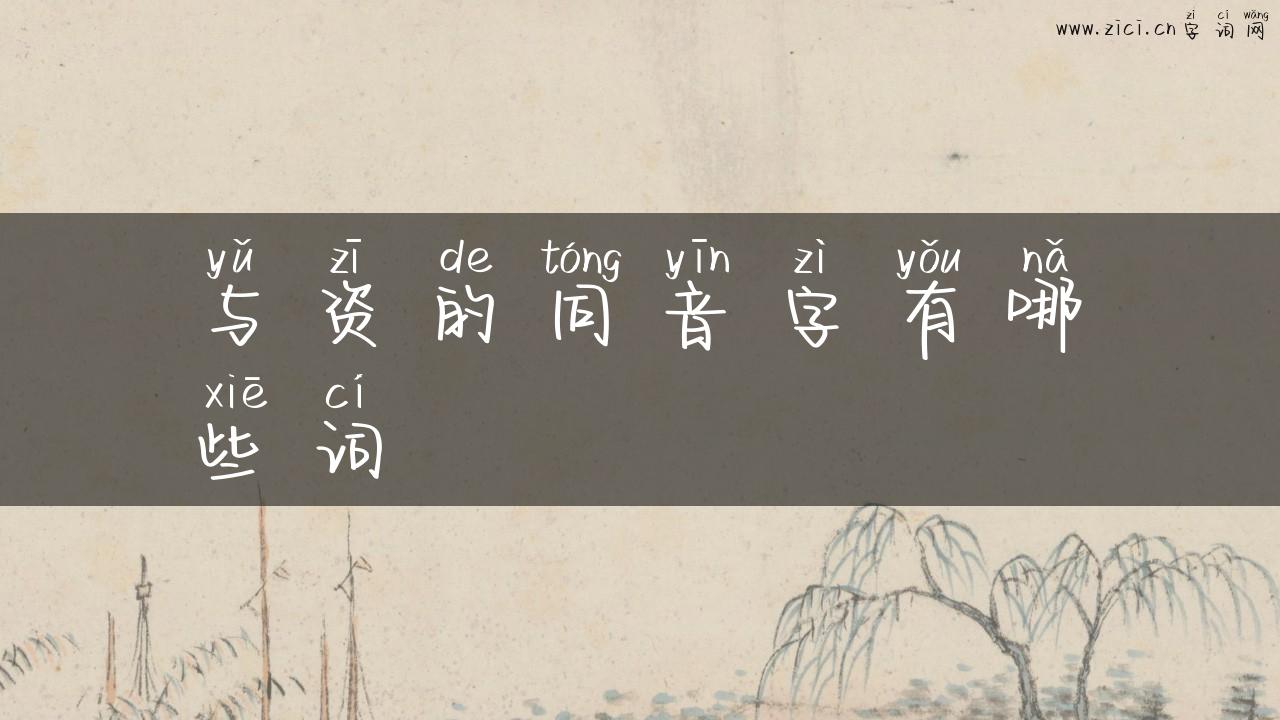 zì cí wǎng
www.zici.cn 字词网
yǔ zī de tóng yīn zì yǒu nǎ
与资的同音字有哪
xiē cí
些词